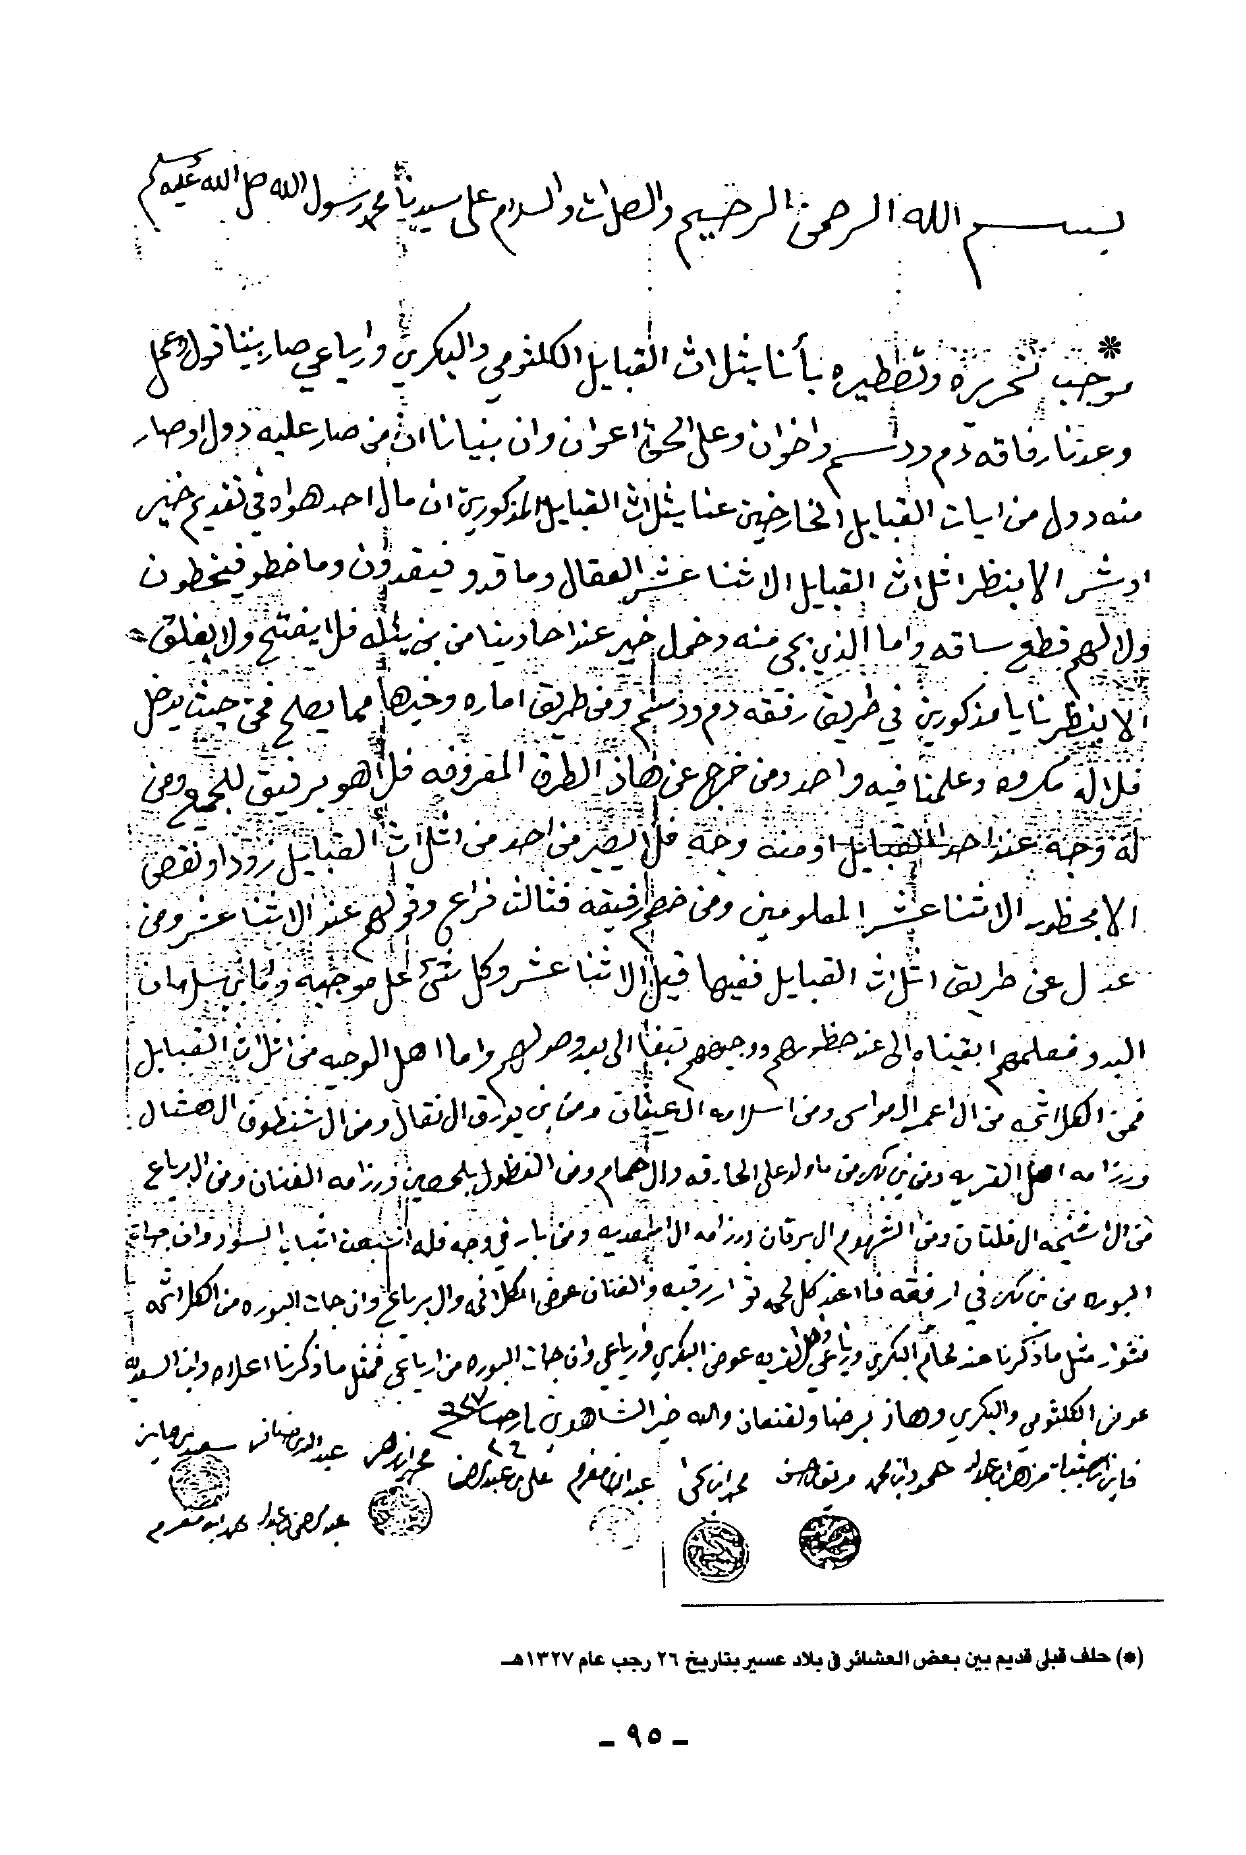 بسم الله الرحمن الرحيم والصلات والسلام على سيدنا محمد رسول الله صل الله عليه وسلم
* موجب تحريره وتطيره بأننا يثلاث القبايل الكلثومي والبكري وارباعي صار بيننا قول وعمل
وعدتنا رفاقه دم ودسم واخوان وعلى الحق اعوان وان بنيانا ان من صار عليه دول اوصار
منه دول من ايات القبايل الخارجين عنا يثلاث القبايل المذكورين ان مال احد هواه في تقديم خير
اوشر الا بنظر اثلاث القبايل الاثنا عشر العقال وما قدو فيقدون وما خطو فيخطون
ولا لهم قطع ساقه واما الذي يجي منه دخول خير عند احادينا من بني يثله فلا يفتح ولا يغلق
الا بنظرنا يا مذكورين في طريق رفقه دم ودسم ومن طريق اماره وغيرها مما يصلح فمن حيث يدخل
فلاله مكروه وعلمنا فيه واحد ومن خرج عن هاذ الطرق المعروفه فلا هو برفيق للجميع ومن
له وجه عند احد القبايل او منه وجه فلا يصير من احد من اثلاث القبايل زود او نقص
الا بحظور الاثنا عشر المعلومين ومن خصم رفيقه فثالث فراع وقولهم عند الاثنا عشر ومن
عدل عن طريق اثلاث القبايل ففيها قيل الاثنا عشر وكل شئ على موجبه واما بن سلمان
البدو فعلمهم ابقيناه الى عند حظورهم ووجيههم تبقا الى بعد وصولهم واما اهل الوجيه من اثلاث القبايل
فمن الكلاثمه من ال اعمر ومن اسلامه العيفان ومن بن يورق ال نقال ومن ال شنظوف ال هشال
ورزامه اهل القريه ومن بن بكر من ماولد علي الحارقه وال حمام ومن الفظول بلحصين ورزامه الفنان ومن ال ارباعي
من ال اشيخه ال فلتان ومن الشهوم ال برقان ورزامه ومن بار في وجه فله
البوره من بن بكر في ارفقه فا عند كل لحمه ثوار رقبه والفنان عوض الكلاثمه وال ارباعي وان جات البوره من الكلاثمه
فثوار مثل ماذكرنا عند لحام البكري ورباعي واهل القريه عوض البكري ورباعي وان جات البوره من ارباعي فمثل ماذكرنا اعلاه
عوض الكلثومي والبكري وهاذ برضا ولقنعان والله خير الشاهدين
محمد ابن يحي علي بن عبدالرحمن
(*) حلف قبلى قديم بين بعض العشائر فى بلاد عسير بتاريخ ٢٦ رجب عام ١٣٢٧هـ
- ٩٥ -